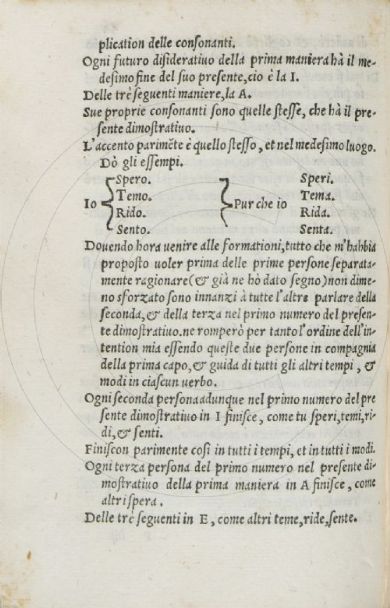 plication delle consonanti.
Ogni futuro disiderativo della prima maniera hà il me-
desimo fine del suo presente, cio è la I.
Delle trè seguenti maniere, la A.
Sue proprie consonanti sono quelle stesse, che hà il pre-
sente dimostrativo.
L'accento parimẽte è quello stesso, et nel medesimo luogo.
Dò gli essempi.
Spero. Speri.
Temo. Tema.
Io Pur che io
Rido. Rida.
Sento. Senta.
Dovendo hora venire alle formationi, tutto che m'habbia
proposto voler prima delle prime persone separata-
mente ragionare (& già ne hò dato segno) non dime-
no sforzato sono innanzi à tutte l'altre parlare della
seconda, & della terza nel primo numero del presen-
te dimostrativo. ne romperò per tanto l'ordine dell'in-
tention mia essendo queste due persone in compagnia
della prima capo, & guida di tutti gli altri tempi, &
modi in ciascun verbo.
Ogni seconda persona adunque nel primo numero del pre
sente dimostrativo in I finisce, come tu speri, temi, ri-
di, & senti.
Finiscon parimente così in tutti i tempi, et in tutti i modi.
Ogni terza persona del primo numero nel presente di-
mostrativo della prima maniera in A finisce, come
altri spera.
Delle trè seguenti in E, come altri teme, ride, sente.